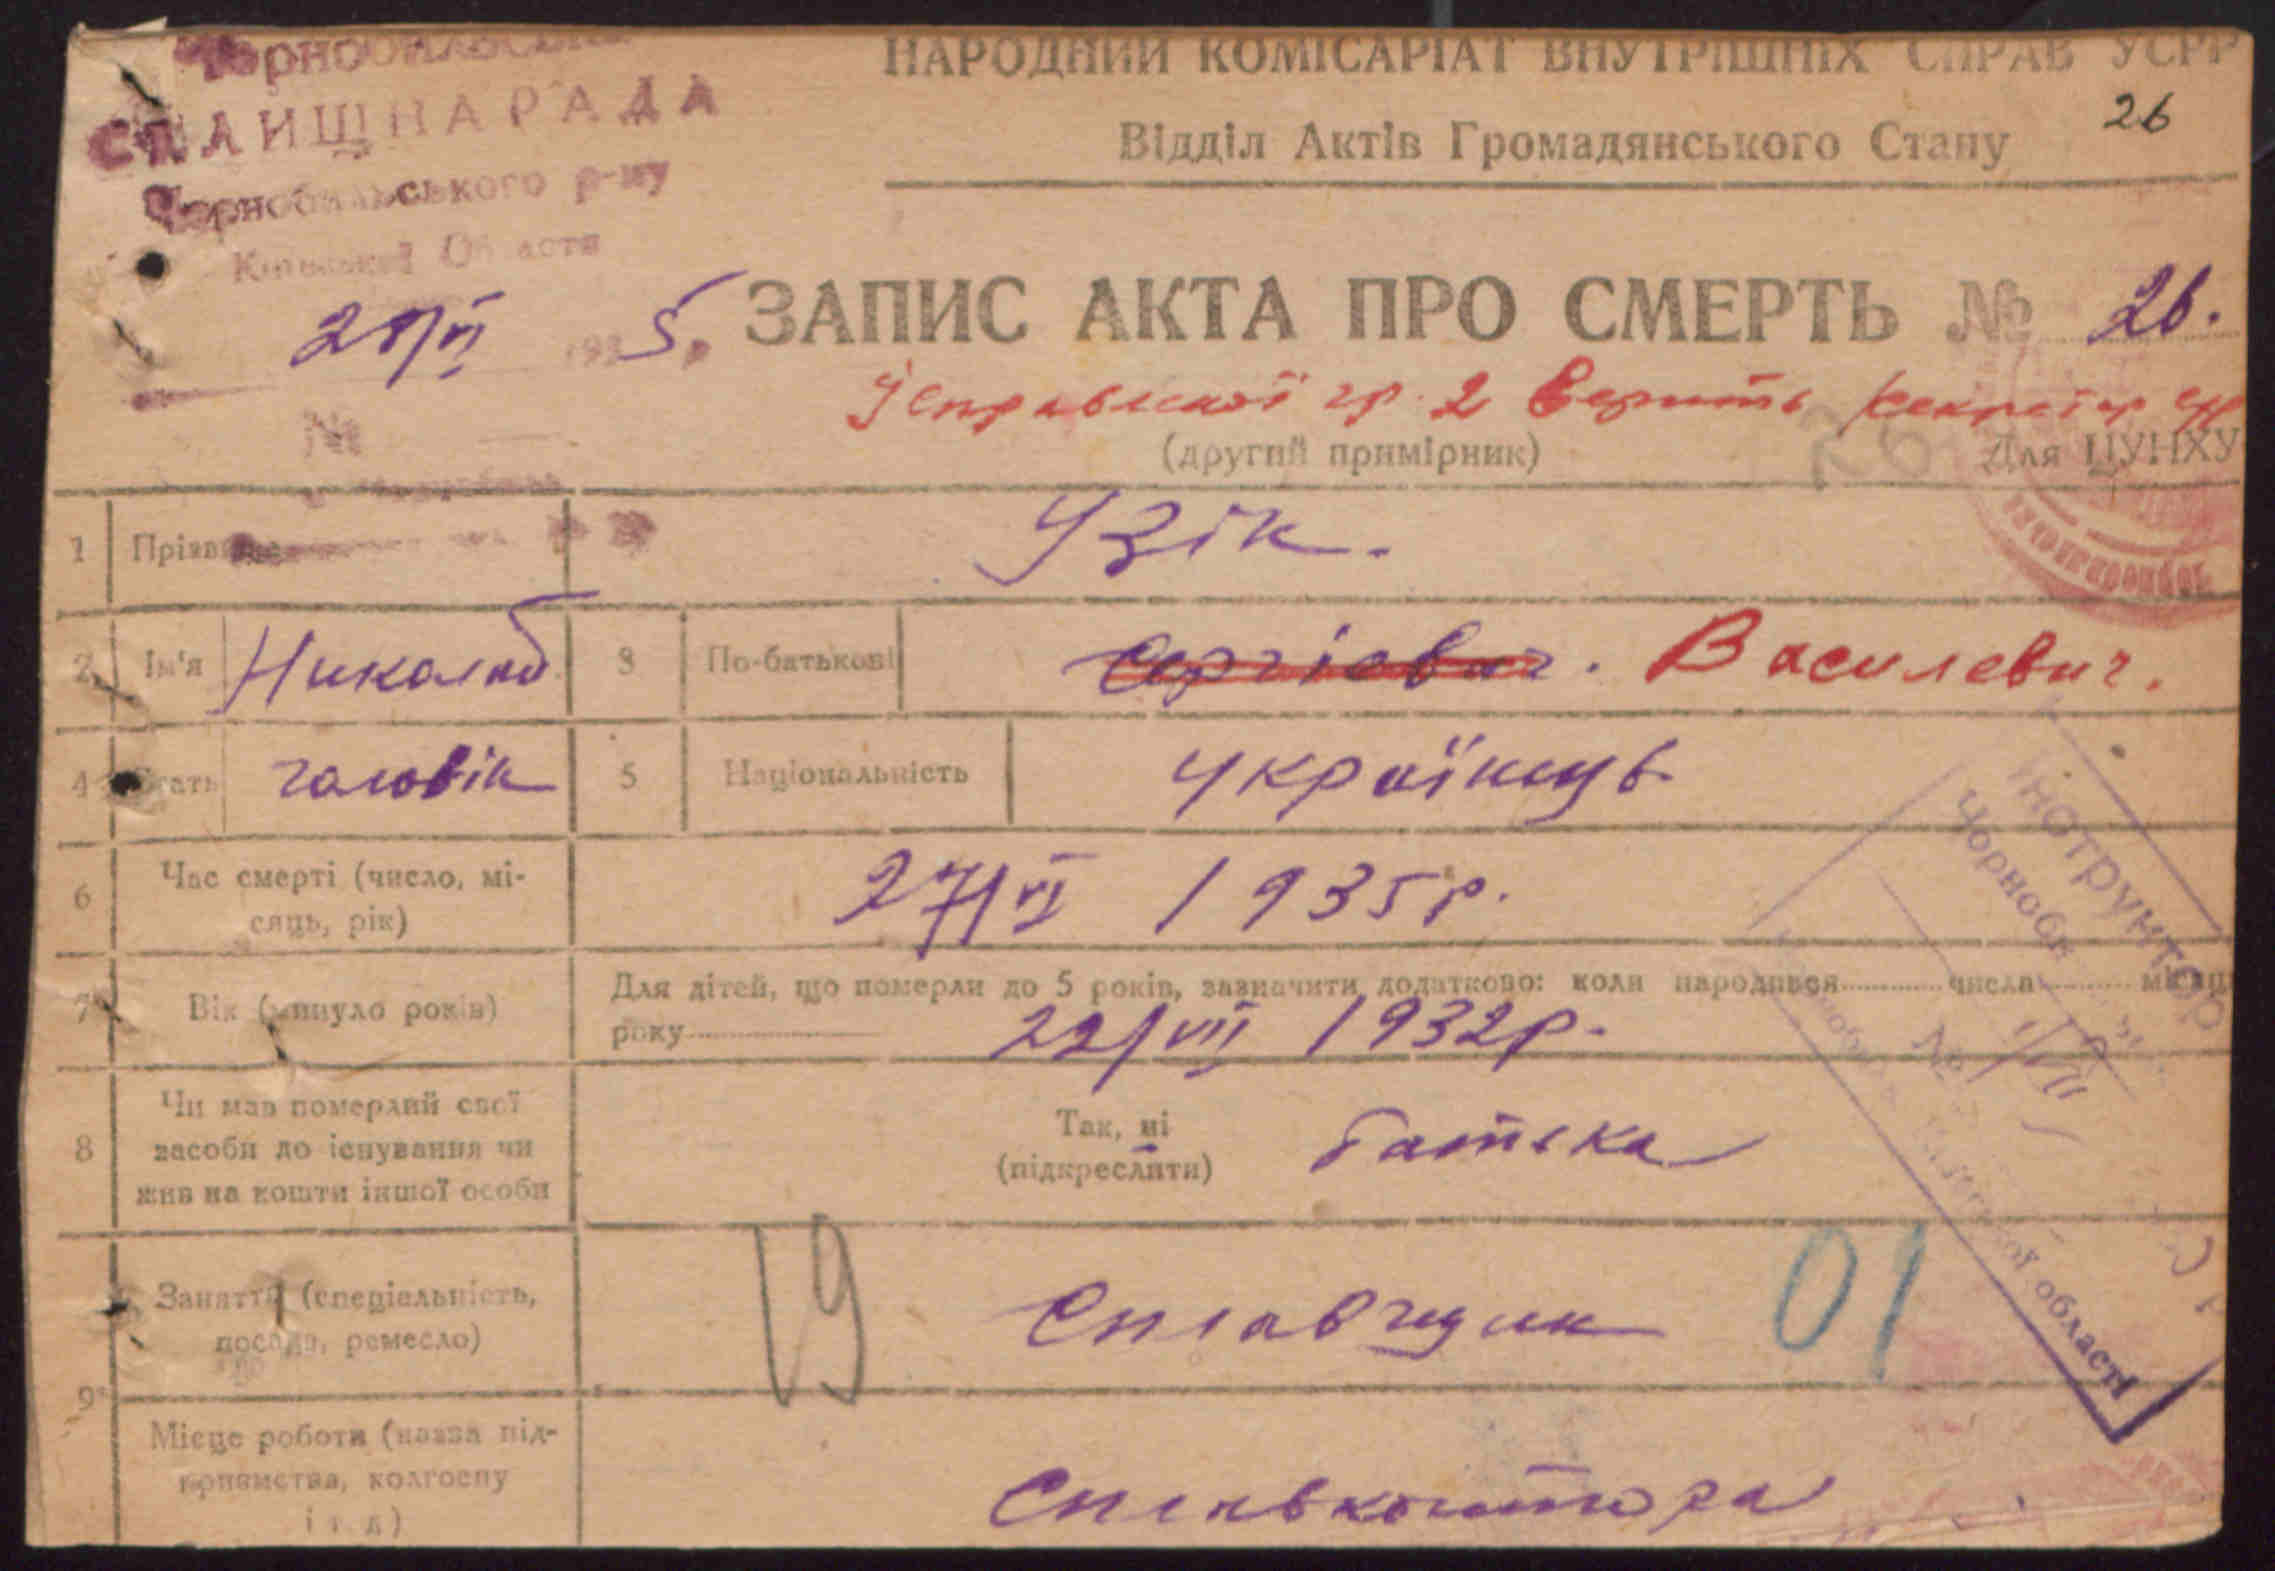 Чорнобильська
СЕЛИЩНА РАДА
Чорнобильського р-ну
Київської Області
28/VI 1935.
№
НАРОДНИЙ КОМІСАРІАТ ВНУТРІШНІХ СПРАВ УСРР
26
Відділ Актів Громадянського Стану
ЗАПИС АКТА ПРО СМЕРТЬ № 26.
гр. 2 Верить секретар
(другий примірник)
26
Для ЦУНХУ
1 Прізвище Узік.
2 Ім'я Николай 3 По-батькові Сергіевич. Василевич.
4 Стать чоловік 5 Національність українець
6 Час смерті (число, мі-
сяць, рік) 27/VI 1935 р.
7 Вік (минуло років) Для дітей, що померли до 5 років, зазначити додатково: коли народився числа місяця
року 22/VII 1932 р.
8 Чи мав померлий свої
засоби до існування чи
жив на кошти іншої особи
Так, ні
(підкреслити) батька
9 Заняття (спеціальність,
посада, ремесло) 19 Сплавщик 01
Місце роботи (назва під-
приємства, колгоспу
і т. д) Сплавконтора
Інструктор
Чорноби
№ 1/VII
області